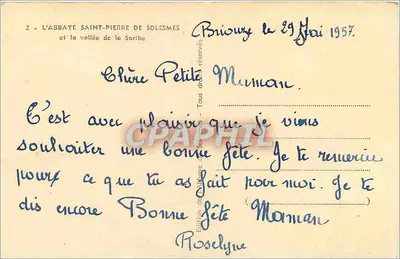 2 - L'ABBAYE SAINT-PIERRE DE SOLESMES
et la vallée de la Sarthe
Briouze le 29 Mai 1957.
Chère Petite Maman.
C'est avec plaisir que je viens
souhaiter une bonne fête. Je te remercie
pour ce que tu as fait pour moi. Je te
dis encore Bonne fête Maman
Roselyne
Tous droits réservés
CPAPHIL